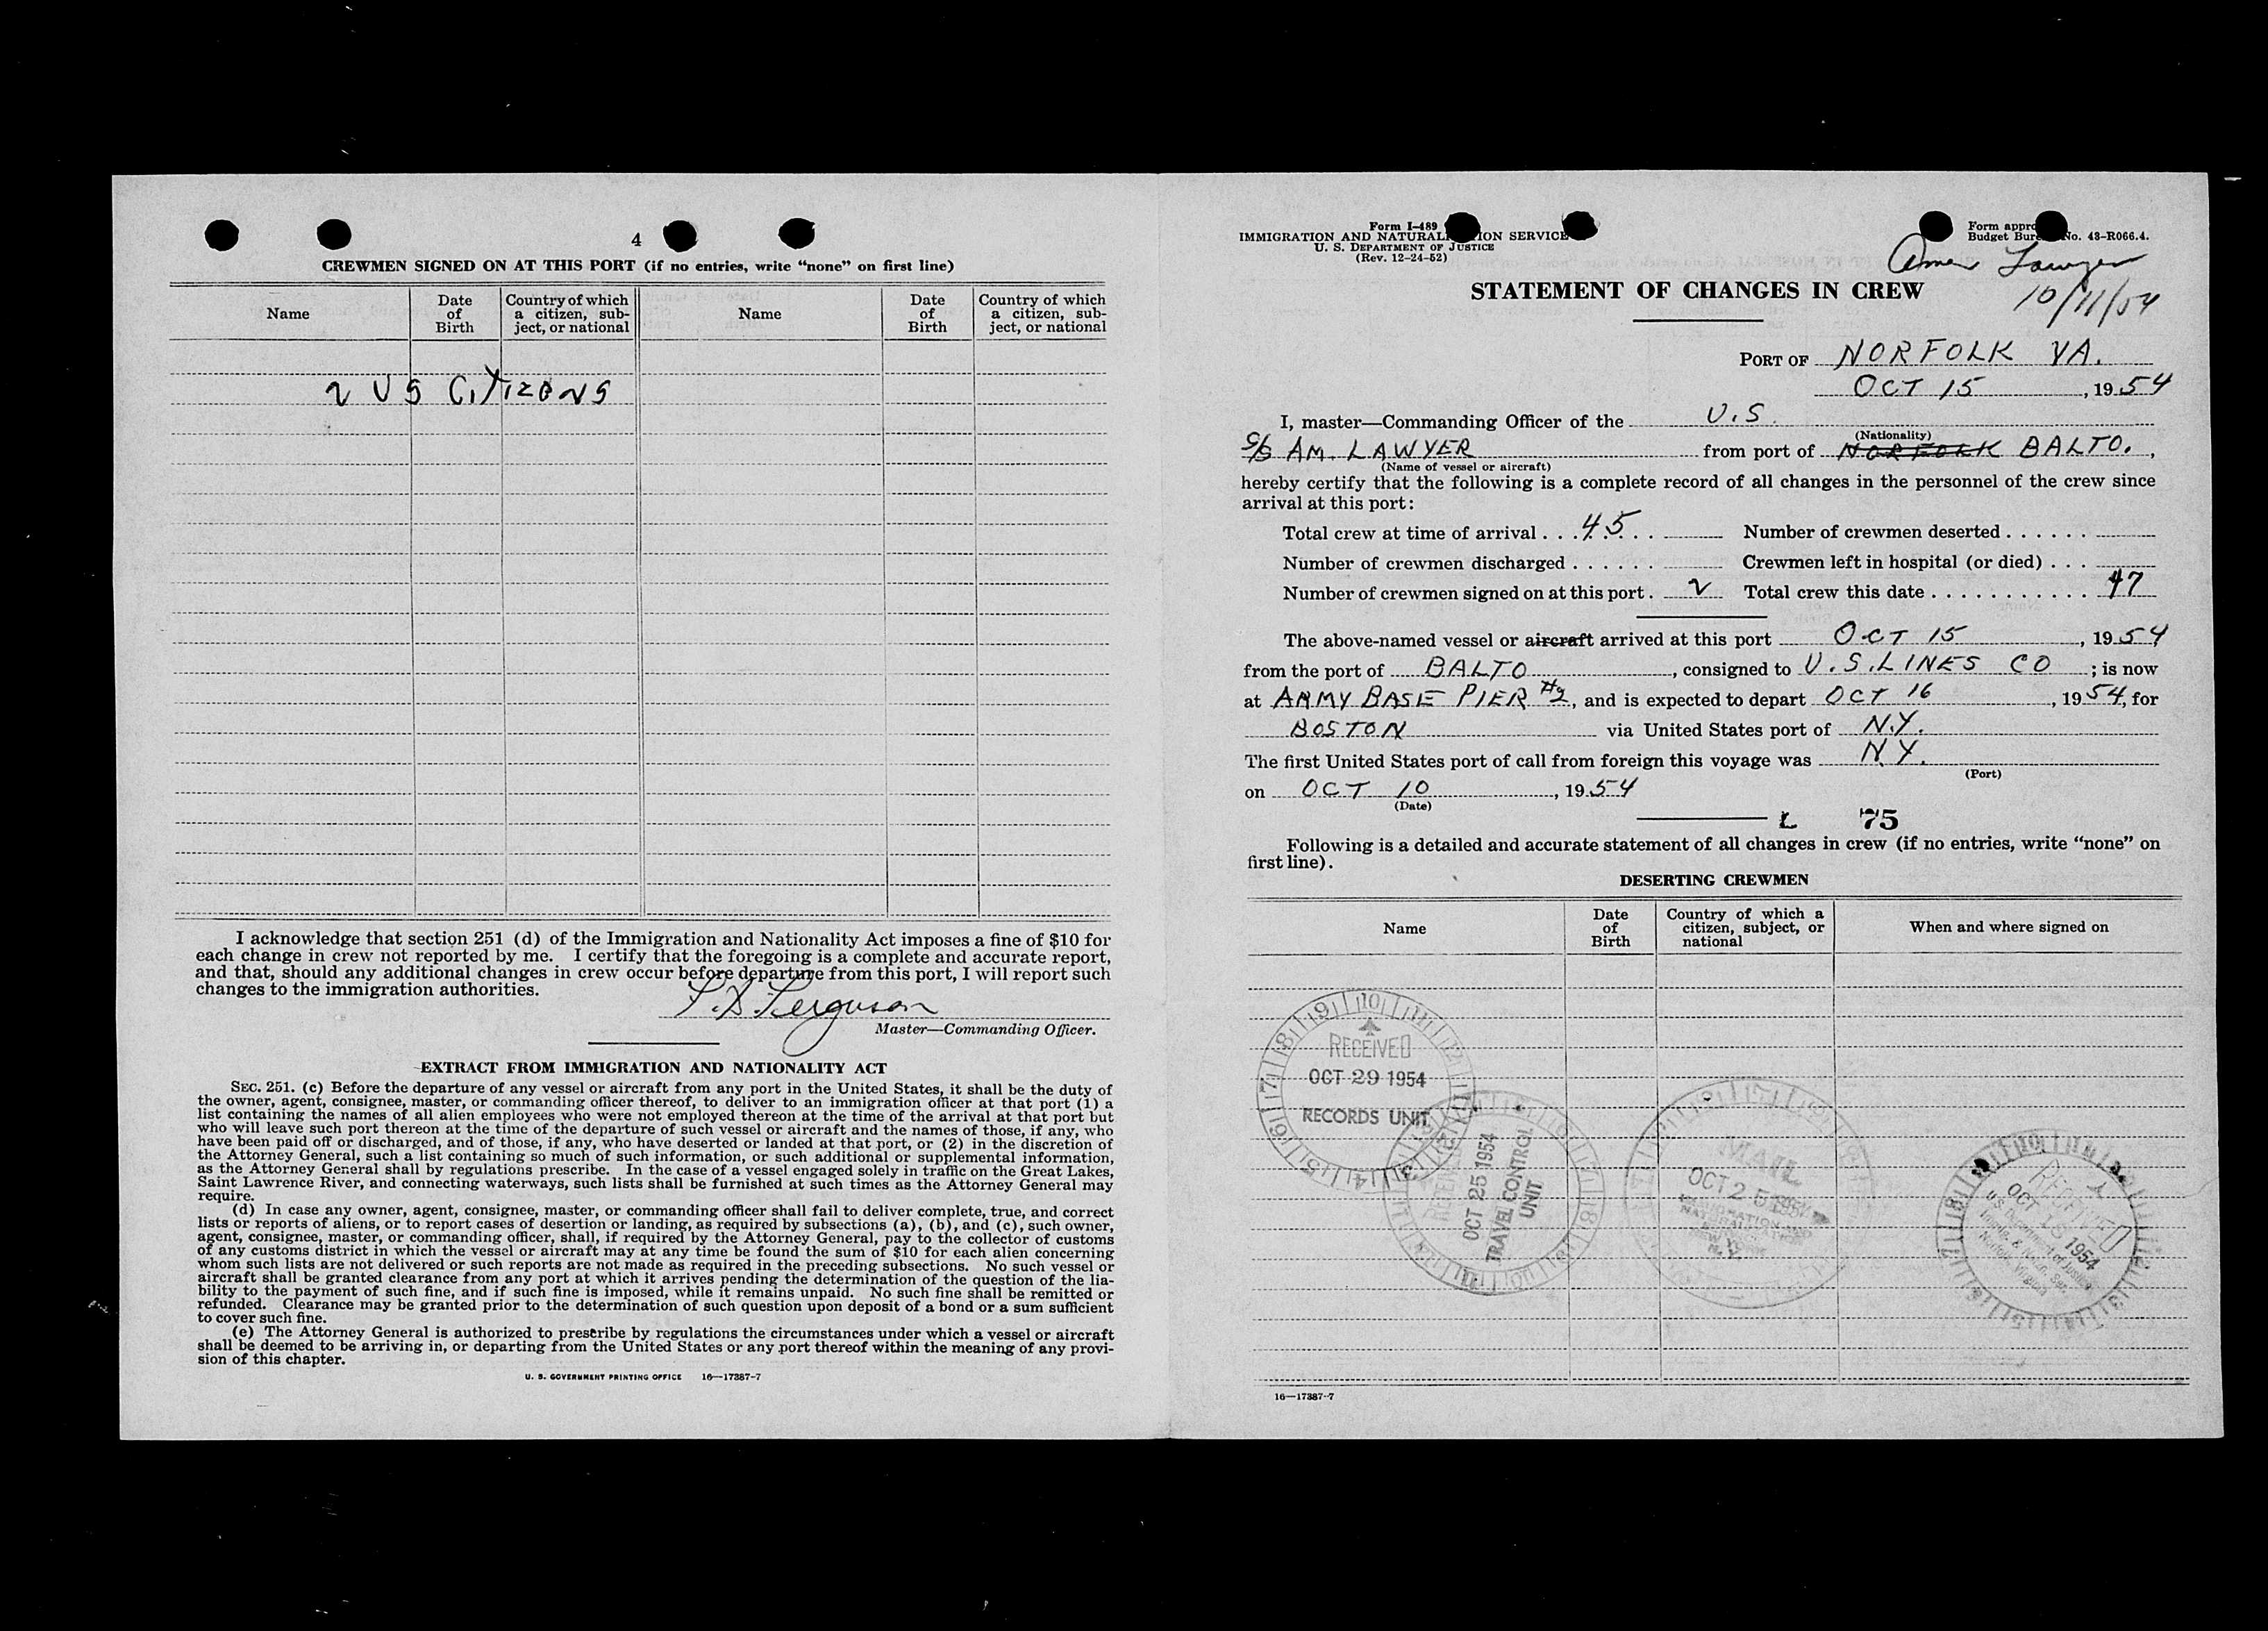 4
CREWMEN SIGNED ON AT THIS PORT (if no entries, write “none” on first line)
Name
Date of Birth
Country of which a citizen, subject, or national
Name
Date of Birth
Country of which a citizen, subject, or national
2 US CITIZENS
I acknowledge that section 251 (d) of the Immigration and Nationality Act imposes a fine of $10 for
each change in crew not reported by me. I certify that the foregoing is a complete and accurate report,
and that, should any additional changes in crew occur before departure from this port, I will report such
changes to the immigration authorities.
Ferguson
Master—Commanding Officer.
EXTRACT FROM IMMIGRATION AND NATIONALITY ACT
SEC. 251. (c) Before the departure of any vessel or aircraft from any port in the United States, it shall be the duty of
the owner, agent, consignee, master, or commanding officer thereof, to deliver to an immigration officer at that port (1) a
list containing the names of all alien employees who were not employed thereon at the time of the arrival at that port but
who will leave such port thereon at the time of the departure of such vessel or aircraft and the names of those, if any, who
have been paid off or discharged, and of those, if any, who have deserted or landed at that port, or (2) in the discretion of
the Attorney General, such a list containing so much of such information, or such additional or supplemental information,
as the Attorney General shall by regulations prescribe. In the case of a vessel engaged solely in traffic on the Great Lakes,
Saint Lawrence River, and connecting waterways, such lists shall be furnished at such times as the Attorney General may
require.
(d) In case any owner, agent, consignee, master, or commanding officer shall fail to deliver complete, true, and correct
lists or reports of aliens, or to report cases of desertion or landing, as required by subsections (a), (b), and (c), such owner,
agent, consignee, master, or commanding officer, shall, if required by the Attorney General, pay to the collector of customs
of any customs district in which the vessel or aircraft may at any time be found the sum of $10 for each alien concerning
whom such lists are not delivered or such reports are not made as required in the preceding subsections. No such vessel or
aircraft shall be granted clearance from any port at which it arrives pending the determination of the question of the lia-
bility to the payment of such fine, and if such fine is imposed, while it remains unpaid. No such fine shall be remitted or
refunded. Clearance may be granted prior to the determination of such question upon deposit of a bond or a sum sufficient
to cover such fine.
(e) The Attorney General is authorized to prescribe by regulations the circumstances under which a vessel or aircraft
shall be deemed to be arriving in, or departing from the United States or any port thereof within the meaning of any provi-
sion of this chapter.
U. S. GOVERNMENT PRINTING OFFICE 16—17387-7
Form I-489
IMMIGRATION AND NATURALIZATION SERVICE
U. S. DEPARTMENT OF JUSTICE
(Rev. 12-24-52)
Form appro
Budget Bur No. 43-R066.4.
Amer Lawyer
10/11/54
STATEMENT OF CHANGES IN CREW
PORT OF NORFOLK VA.
OCT 15, 1954
I, master—Commanding Officer of the U.S.
(Nationality)
S/S AM. LAWYER from port of NORFOLK BALTO.,
(Name of vessel or aircraft)
hereby certify that the following is a complete record of all changes in the personnel of the crew since
arrival at this port:
Total crew at time of arrival . . . 45 Number of crewmen deserted . . . . . .
Number of crewmen discharged . . . . . . Crewmen left in hospital (or died) . . .
Number of crewmen signed on at this port . 2 Total crew this date . . . . . . . . . . . 47
The above-named vessel or aircraft arrived at this port OCT 15, 1954
from the port of BALTO, consigned to U.S. LINES CO; is now
at ARMY BASE PIER #2, and is expected to depart OCT 16, 1954, for
BOSTON via United States port of N.Y.
The first United States port of call from foreign this voyage was N.Y.
(Port)
on OCT 10, 1954
(Date)
L 75
Following is a detailed and accurate statement of all changes in crew (if no entries, write “none” on
first line).
DESERTING CREWMEN
Name
Date of Birth
Country of which a citizen, subject, or national
When and where signed on
RECEIVED
OCT 29 1954
RECORDS UNIT
RECEIVED
OCT 25 1954
TRAVEL CONTROL
UNIT
MAIL
OCT 25 1954
RECEIVED
OCT 18 1954
U.S. Department of Justice
Immig. & Natzn. Ser.
Norfolk, Virginia
16—17387-7